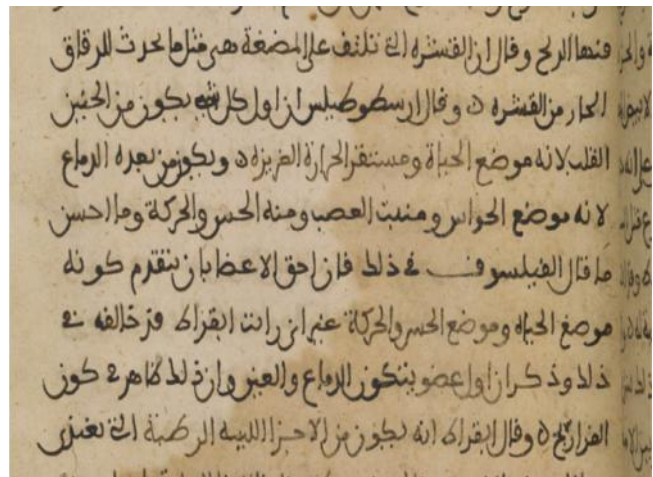 فيها الريح وقال ان القشره التي تلتف على المضغة هي مثل ما يحدث للرقاق
الحار من القشره ٥ وقال ارسطوطيلس ان اول كل شيء يكون من الجنين
القلب لانه موضع الحياة ومستقر الحرارة الغريزه ٥ ويكون من بعده الدماغ
لانه موضع الحواس ومنبت العصب ومنه الحس والحركة وما احسن
ما قال الفيلسوف في ذلك فان احق الاعضا بان يتقدم كونه
موضع الحياه وموضع الحس والحركة غير اني رايت ابقراط قد خالفه في
ذلك وذكر ان اول عضو يتكون الدماغ والعين وان ذلك ظاهر في كون
الفراريج ٥ وقال ابقراط انه يكون من الاجزا اللينه الرطبة التي تغتذي